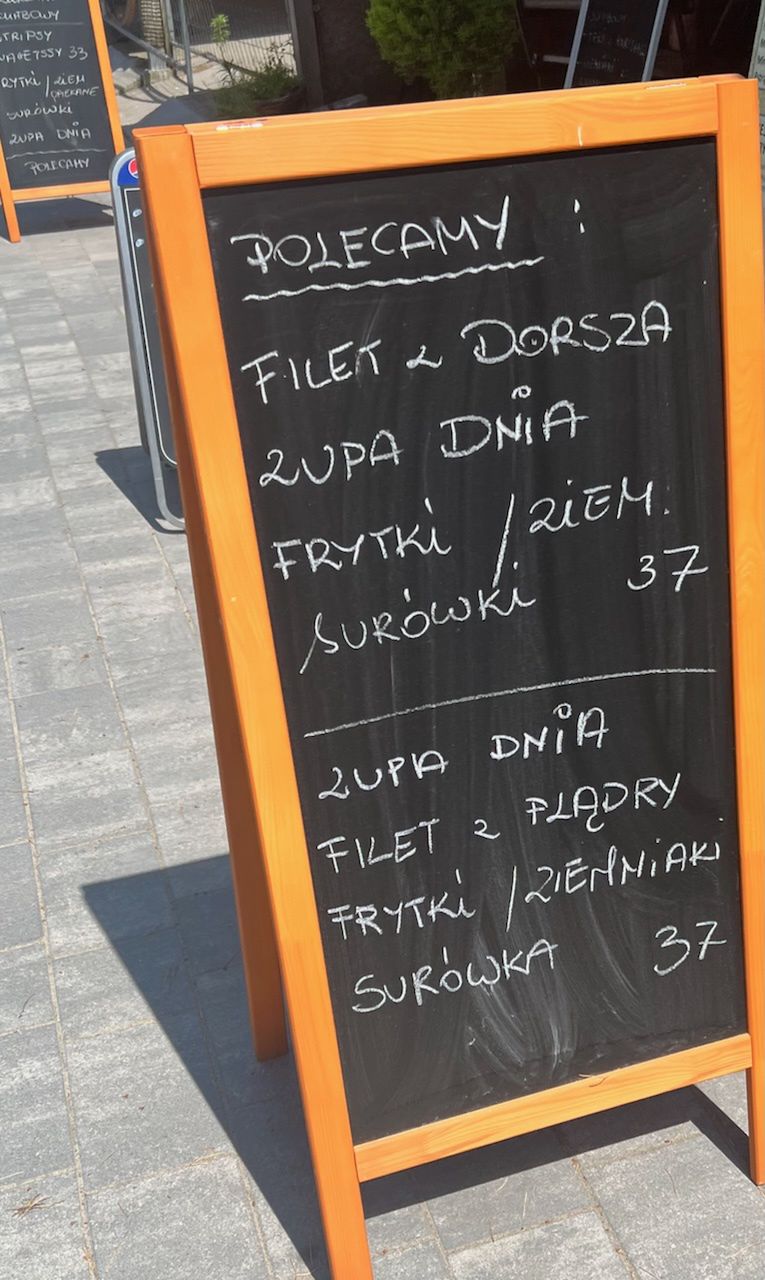 POLECAMY :
FILET z DORSZA
ZUPA DNiA
FRYTKi / ZiEM.
SURÓWKi 37
ZUPA DNiA
FILET z FLĄDRY
FRYTKi / ZIEMNiAKi
SURÓWKA 37
STRIPSY
33
/ ZIEM
SURÓWKi
ZUPA DNiA
POLECAMY